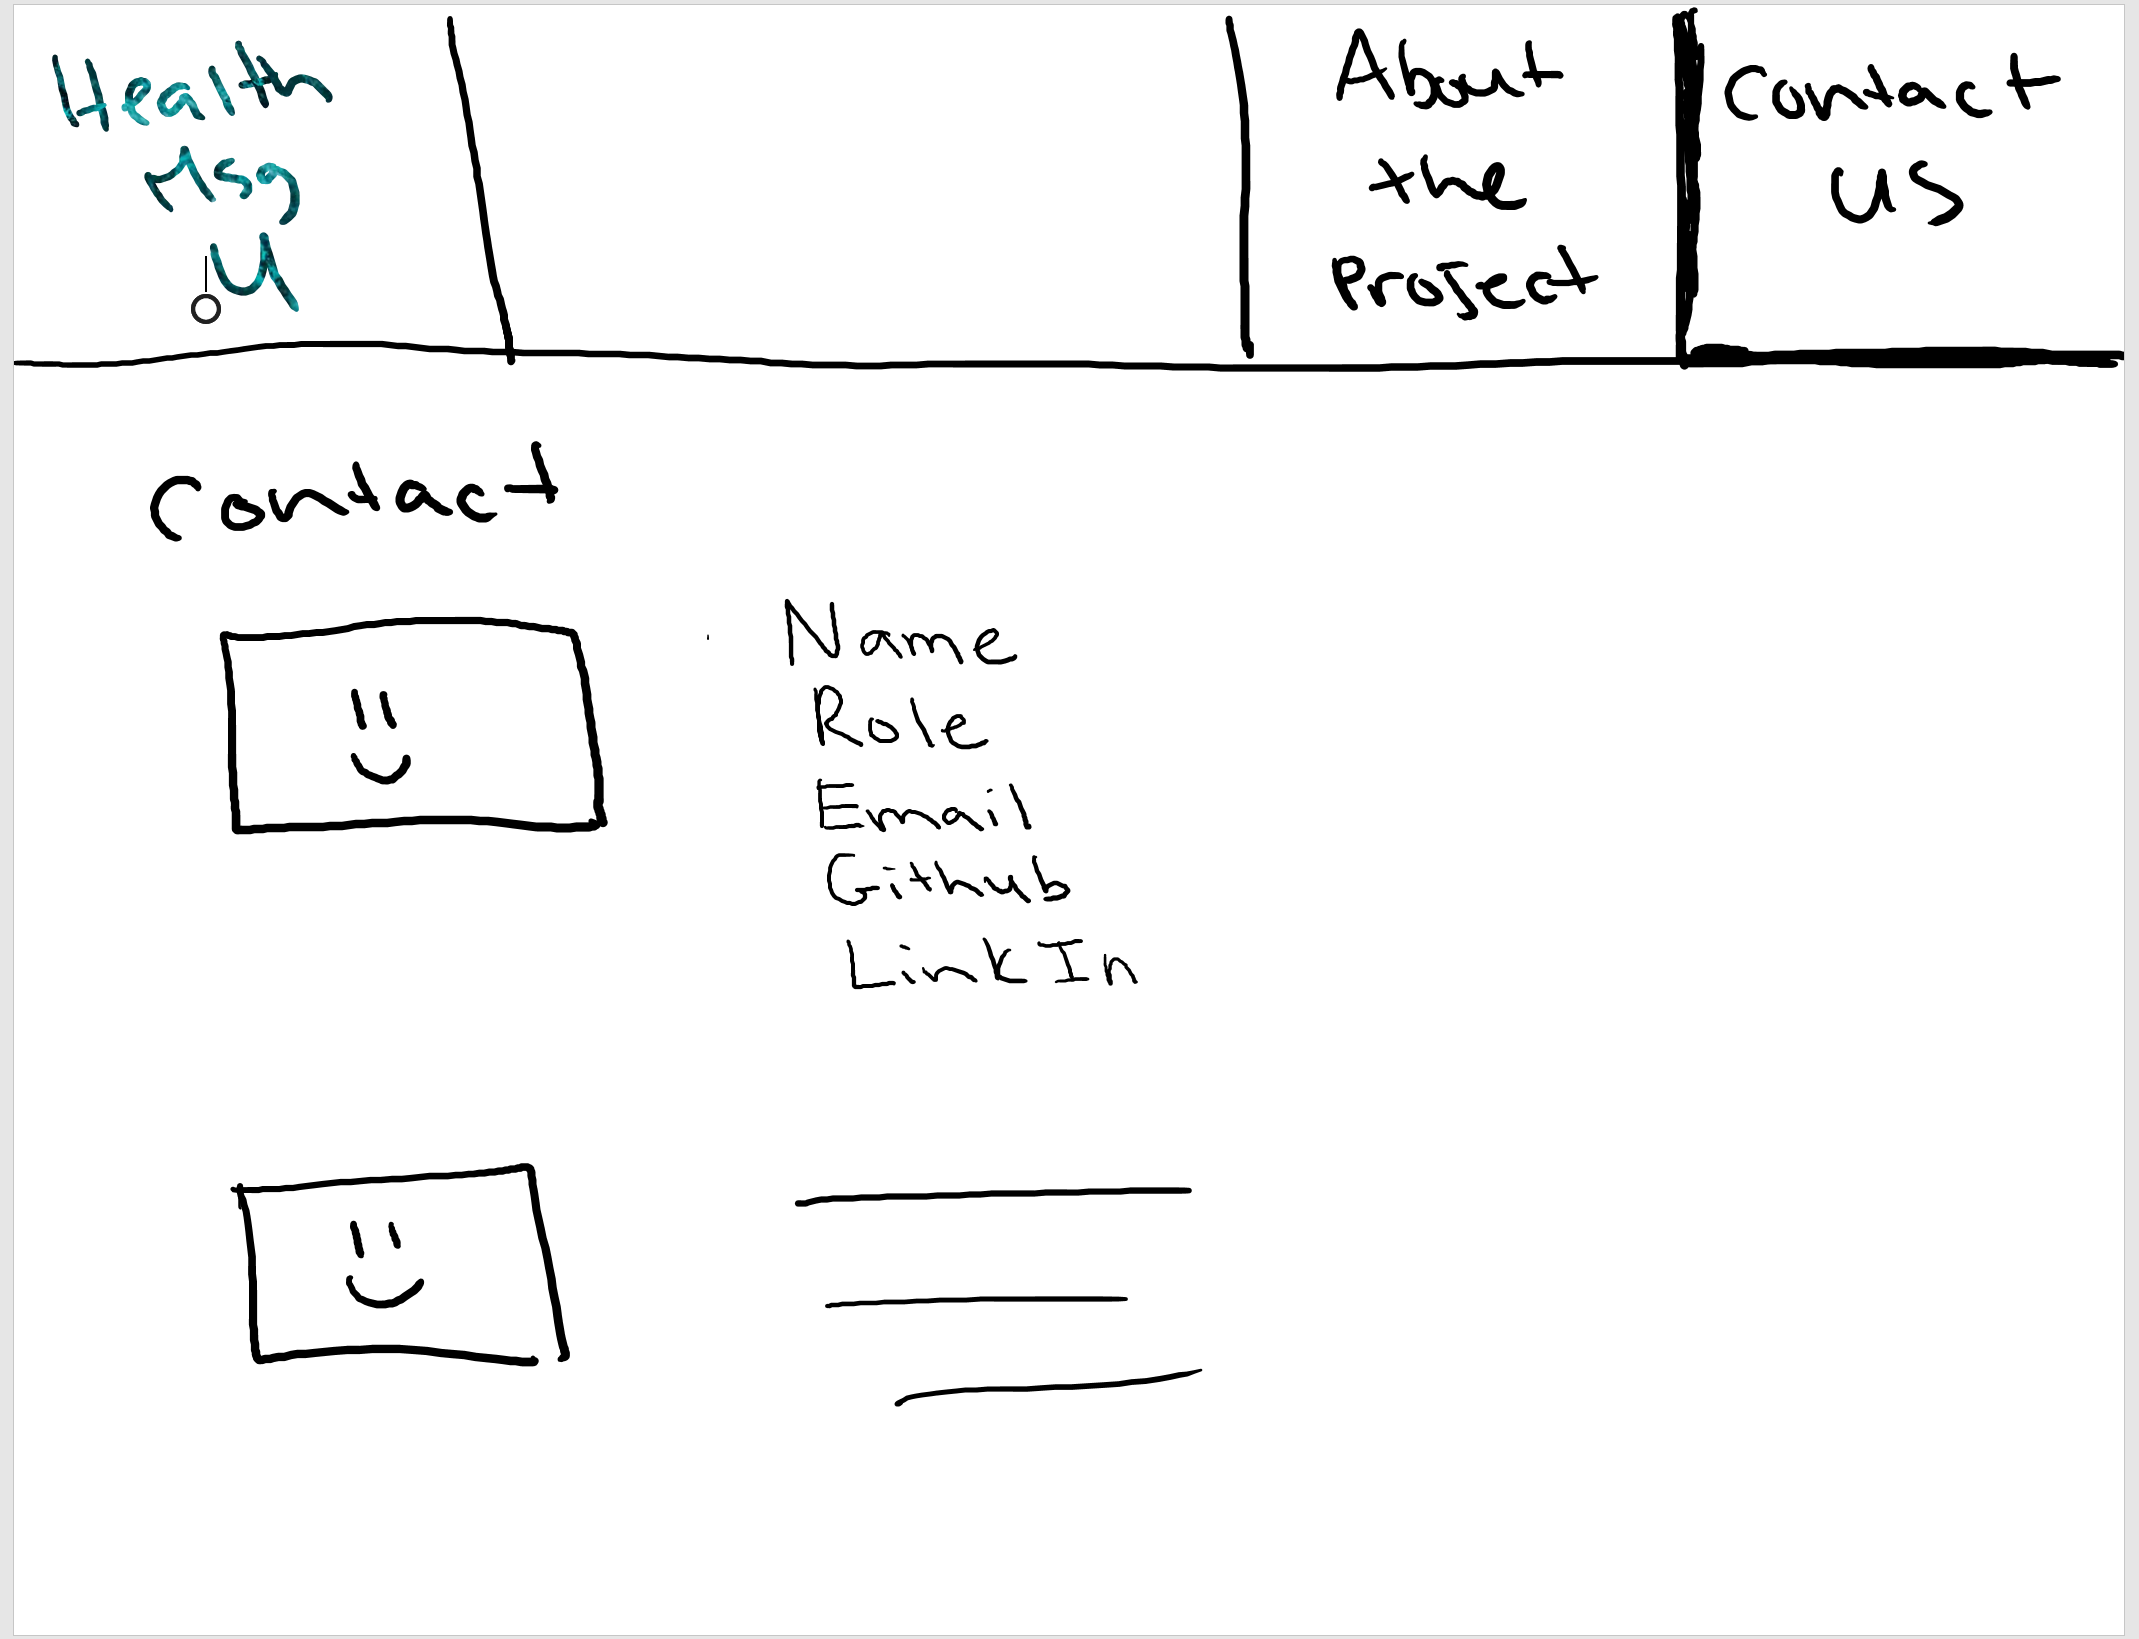 Health
Msg
U
About
the
Project
Contact
us
Contact
Name
Role
Email
Github
LinkIn